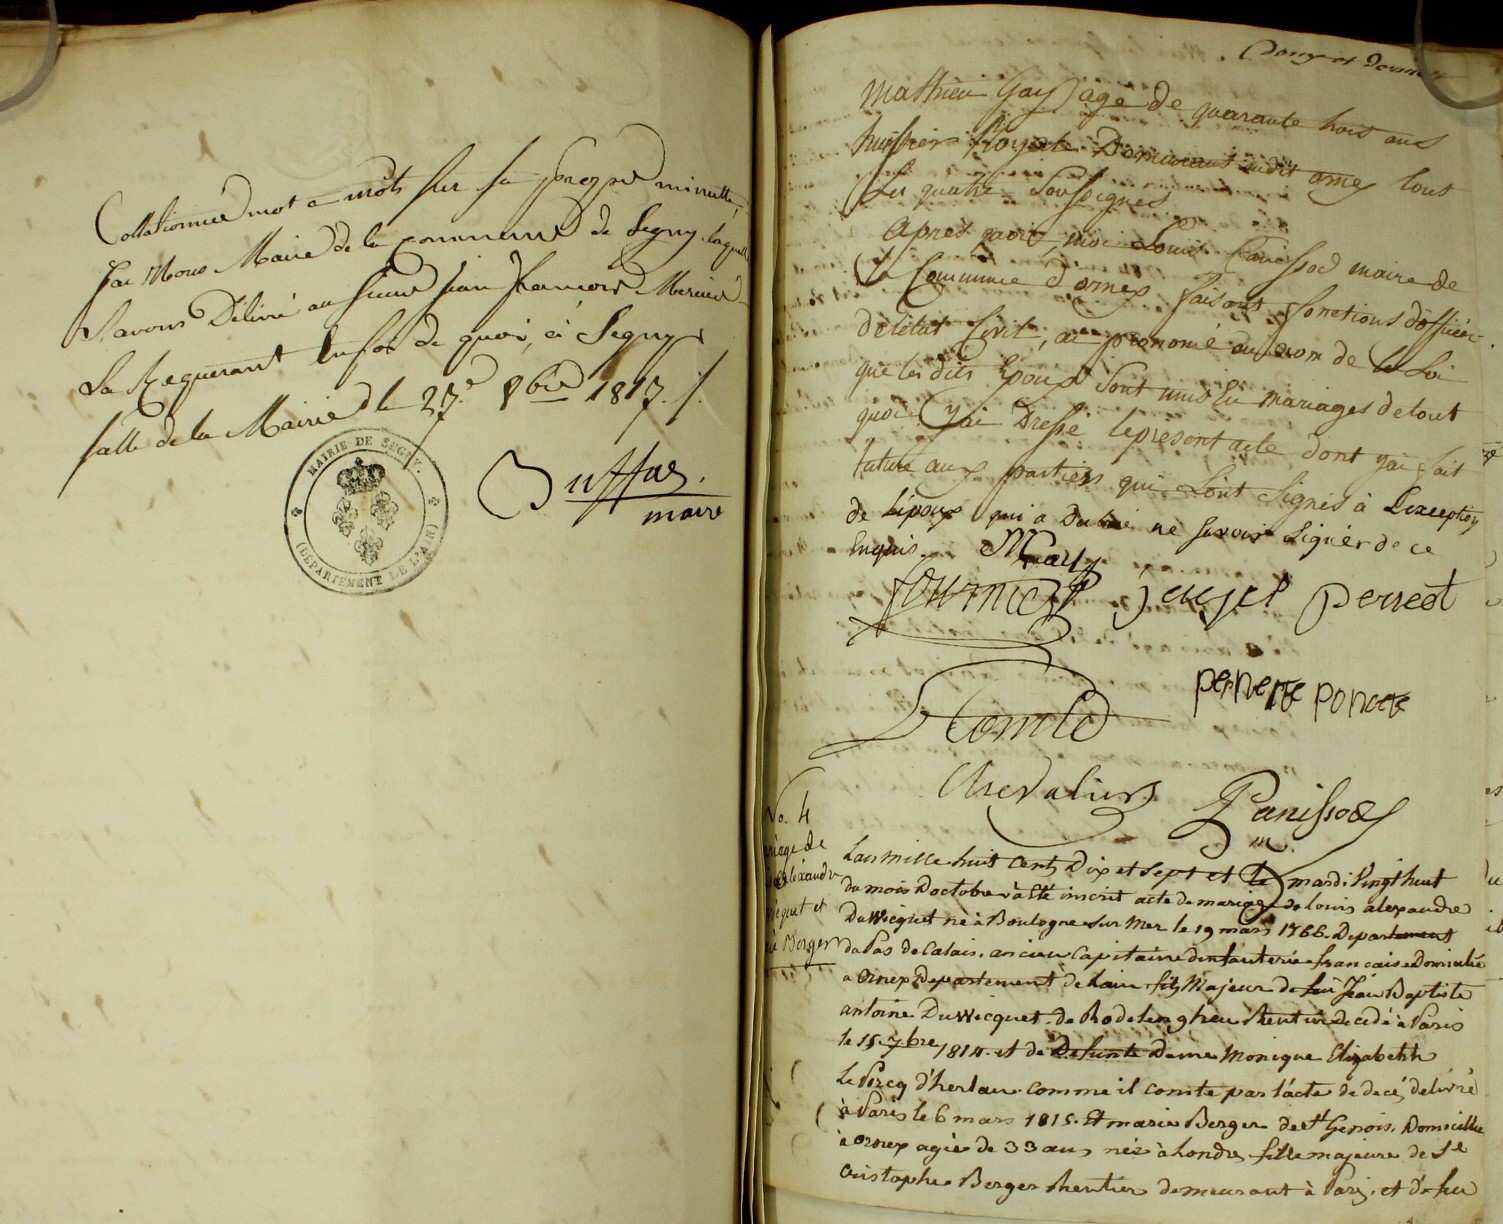 Collationné mot a mots sur sa propre minutte,
par Nous Maire de la commune de Segny. laquelle
avons Delivré au sieur jean françois Mercier
Le Requerant En foi de quoi, à Segny
salle de la Mairie le 27.e 8bre 1817./.
MAIRIE DE SEGNY.
(DÉPARTEMENT DE L'AIN)
Duffas.
maire
Mathieu Gay agé de quarante trois ans
huissier Royale Demeurant audit ornex tous
Les quatre Soussignés
Après quoi, moi Louis Panissod maire de
La Commune d'ornex faisant fonctions d'officier
de létat Civil, ai prononcé au nom de la Loi
que les dits Epoux sont unis En mariages de tout
quoi J'ai Dressé le present acte dont j'ai fait
lecture aux parties qui l'ont Signés à L'exception
de lépoux qui a Declaré ne savoir Signer de ce
Enquis. MGay
fournier perreot
pernette poncete
Chevaliers Panissod
m.
No. 4
mariage de
alexandre
Wicquet et
Berger
L'an mille huit Cent Dix et sept et le mardi vingt huit
du mois D'octobre à Eté inscrit acte de mariage de louis alexandre
DuWicquet né à Boulogne sur Mer le 19 mars 1766. Departement
du Pas de Calais. ancien Capitaine d'infanterie française Domicilié
a ornex Departement de Lain fils Majeur de feu Jean Baptiste
antoine DuWicquet de Rodelenghen Rentier Decedé à Paris
le 15. 7bre 1814. et de Defunte Dame Monique Elizabeth
Le Porcq d'herlan comme il conste par l'acte de decé, delivré
à Paris le 6 mars 1815. Et marie Berger de St Genois. Domiciliée
à ornex agée de 33 ans née à Londre, fille majeure de Sr
Cristophe Berger Rentier demeurant à Paris. et de feu